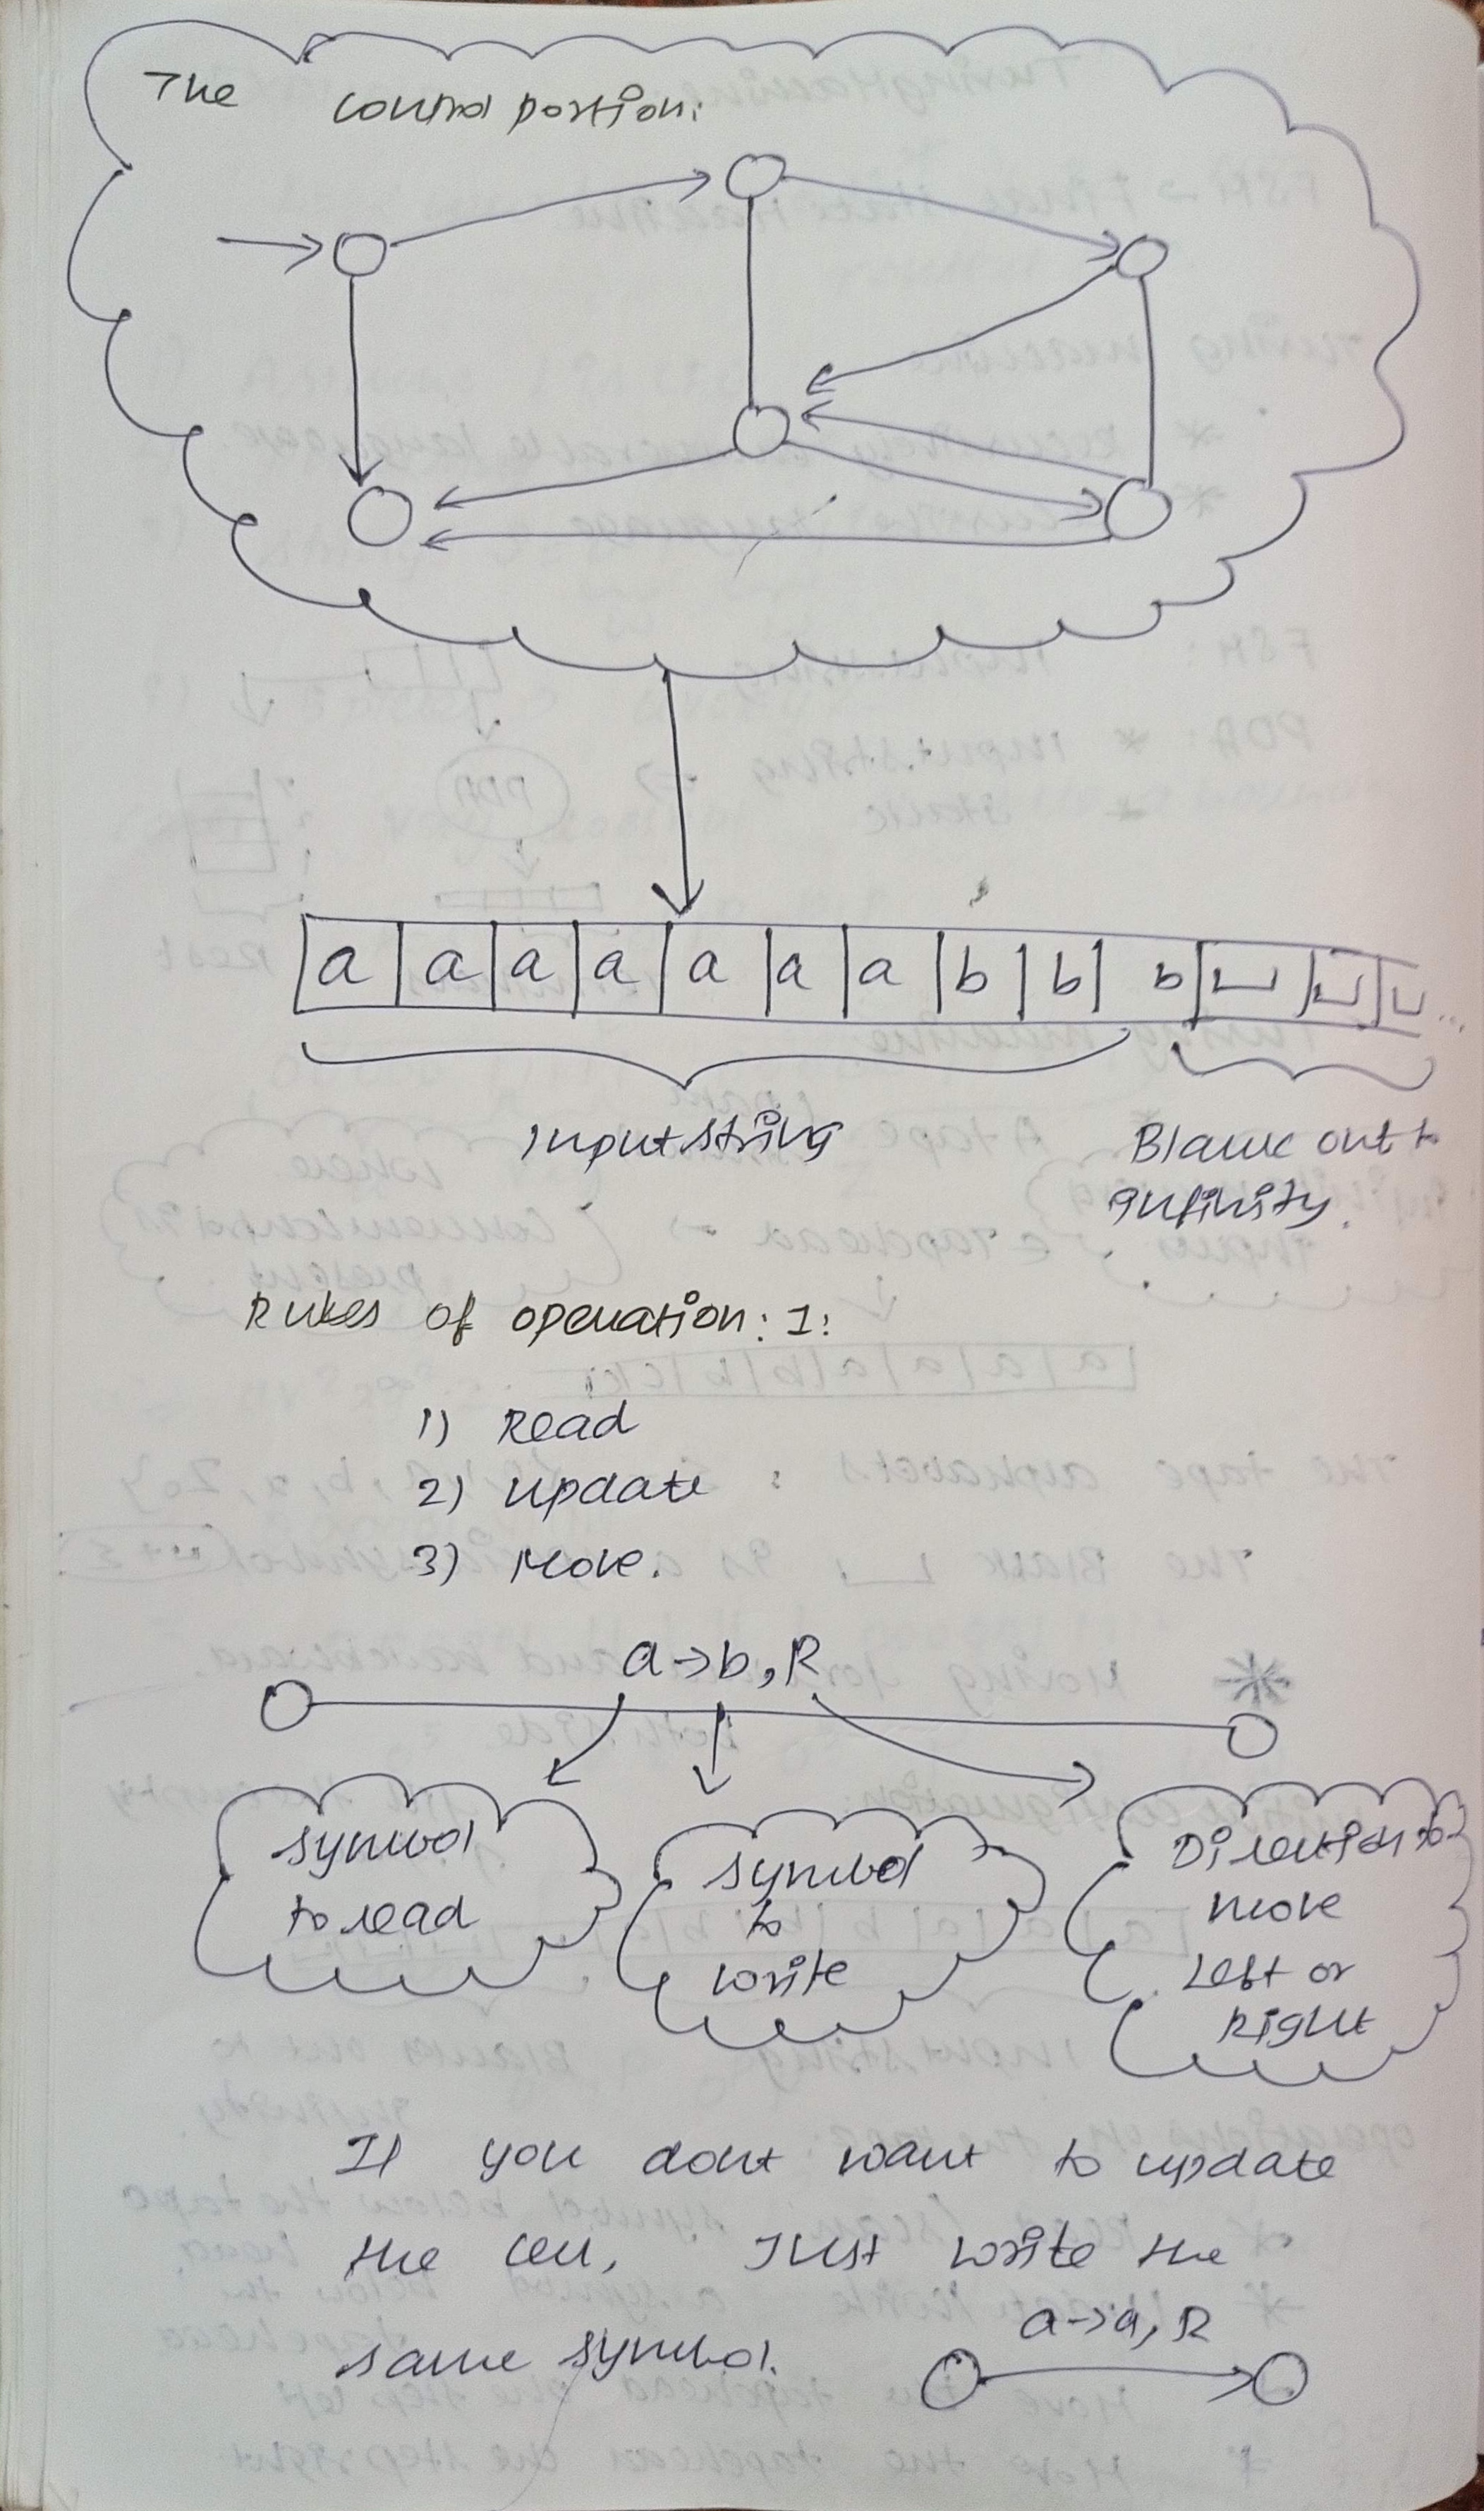 The control portion:
a a a a a a a b b b ⊔ ⊔ ⊔ ...
Input string
Blank out to
infinity.
Rules of operation: 1:
1) Read
2) update
3) Move.
a→b, R
symbol
to read
symbol
to
write
Direction to
move
Left or
Right
If you dont want to update
the cell, Just write the
same symbol.
a→a, R